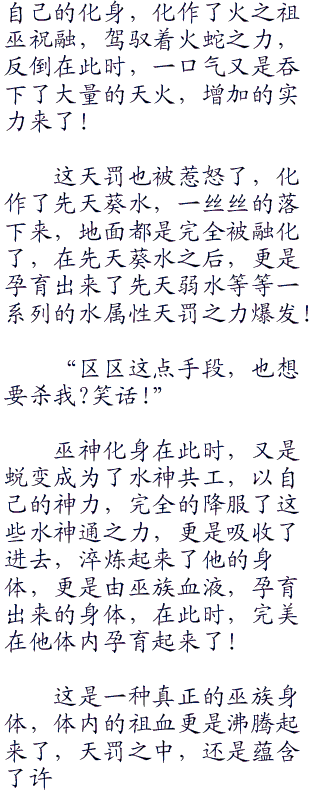 自己的化身，化作了火之祖
巫祝融，驾驭着火蛇之力，
反倒在此时，一口气又是吞
下了大量的天火，增加的实
力来了！
这天罚也被惹怒了，化
作了先天葵水，一丝丝的落
下来，地面都是完全被融化
了，在先天葵水之后，更是
孕育出来了先天弱水等等一
系列的水属性天罚之力爆发！
“区区这点手段，也想
要杀我？笑话！”
巫神化身在此时，又是
蜕变成为了水神共工，以自
己的神力，完全的降服了这
些水神通之力，更是吸收了
进去，淬炼起来了他的身
体，更是由巫族血液，孕育
出来的身体，在此时，完美
在他体内孕育起来了！
这是一种真正的巫族身
体，体内的祖血更是沸腾起
来了，天罚之中，还是蕴含
了许